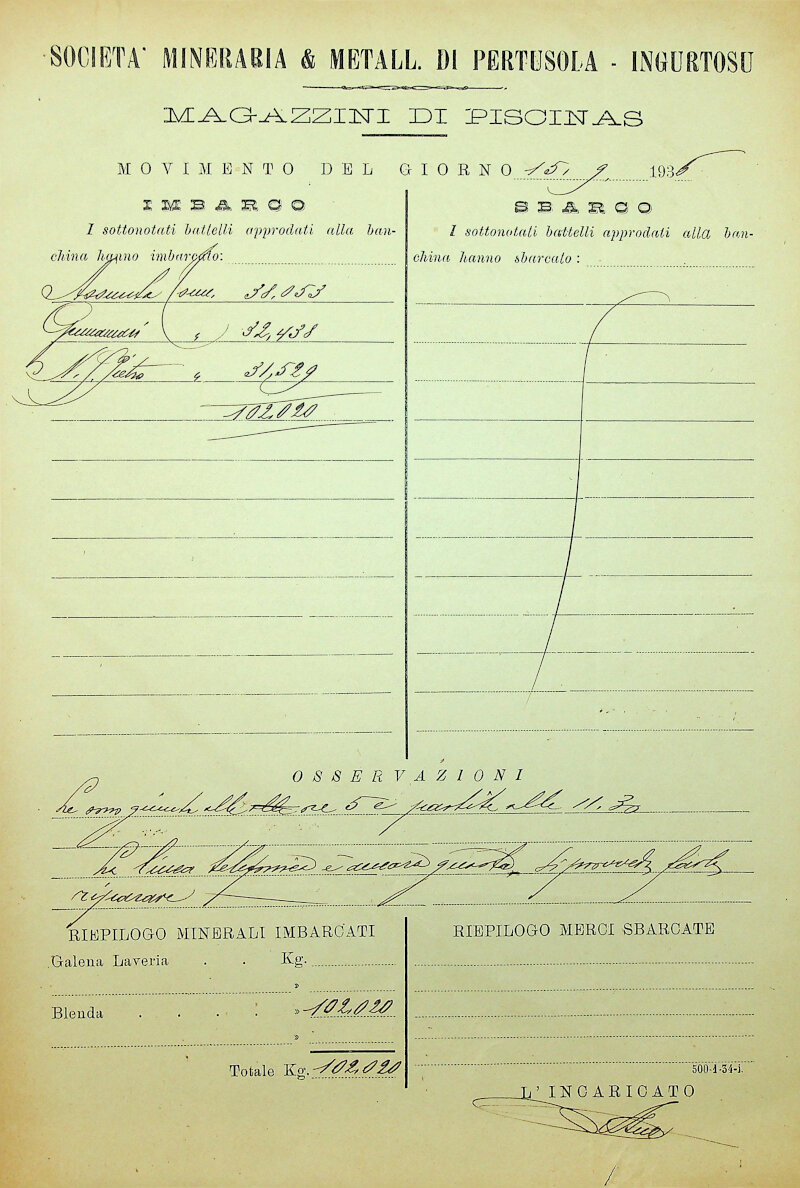 SOCIETA' MINERARIA & METALL. DI PERTUSOLA - INGURTOSU
MAGAZZINI DI PISCINAS
MOVIMENTO DEL GIORNO 15. 9. 1936
IMBARCO
I sottonotati battelli approdati alla ban-
china hanno imbarcato:
Assunta 38,053
" 32,438
N. S. Pietro " 31,529
102.020
SBARCO
I sottonotati battelli approdati alla ban-
china hanno sbarcato:
OSSERVAZIONI
Le sono giunte alle ore 5 e partite alle 11.30
La linea telefonica è ancora guasta, si provveda farla
riparare
RIEPILOGO MINERALI IMBARCATI
Galena Laveria . . Kg.
»
Blenda . . . . » 102.020
»
Totale Kg. 102.020
RIEPILOGO MERCI SBARCATE
500-1-34-i.
L'INCARICATO